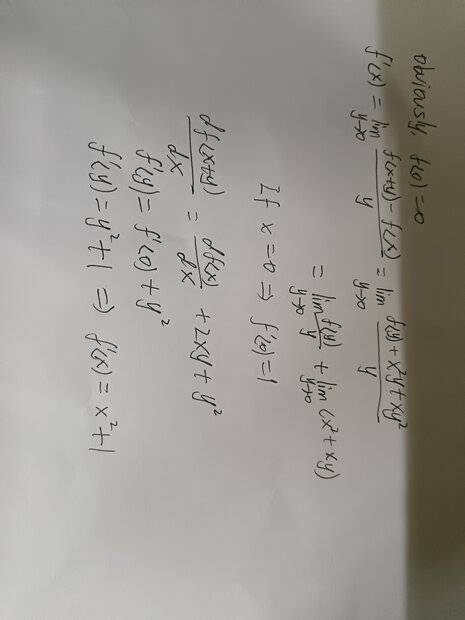 obviously, f(0) = 0
f'(x) = lim y→0 f(x+y) - f(x) / y = lim y→0 f(y) + x²y + xy² / y
= lim y→0 f(y) / y + lim y→0 (x² + xy)
If x = 0 ⇒ f'(0) = 1
df(x+y) / dx = df(x) / dx + 2xy + y²
f'(y) = f'(0) + y²
f'(y) = y² + 1 ⇒ f'(x) = x² + 1